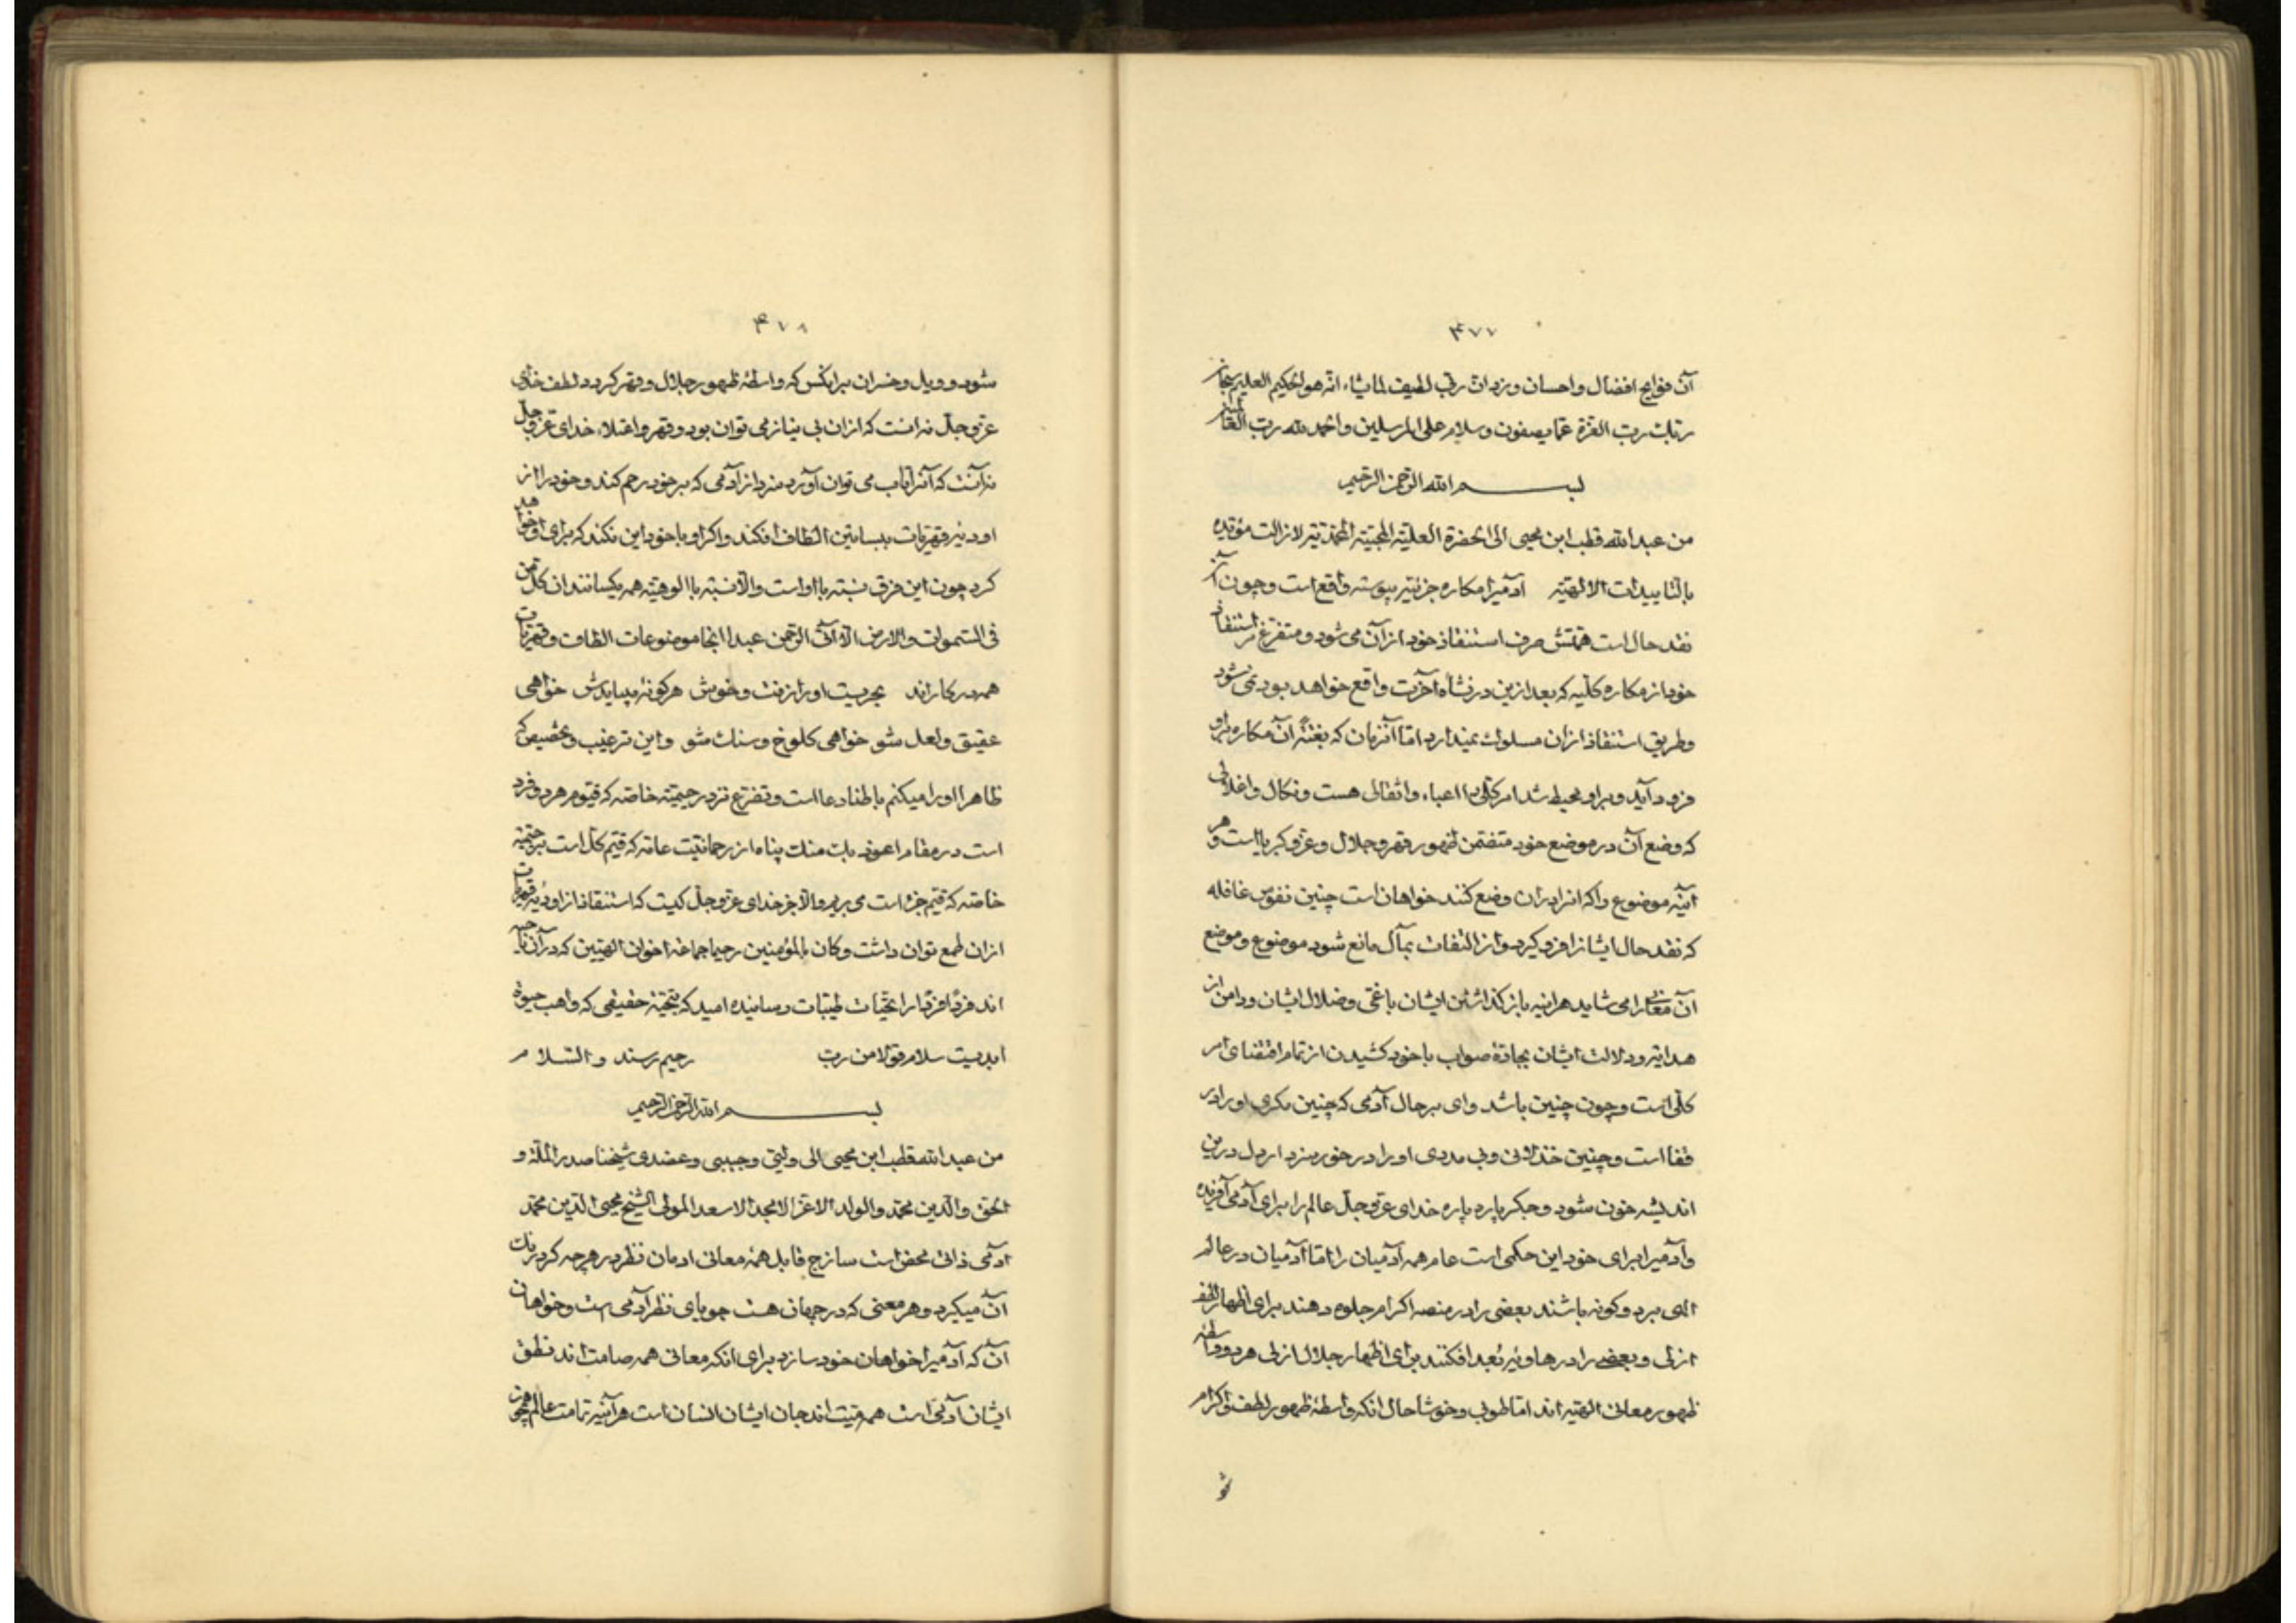 ۴۷۷
آن فوایح افضال و احسان وزد ان ربی لطیف لما یشاء انه هو الحکیم العلیم سبحان
ربک رب العزة عما یصفون و سلام علی المرسلین و الحمد لله رب العالمین
بسم الله الرحمن الرحیم
من عبد الله قطب ابن محیی الی الحضرة العلیة المحبیة المحمدیة لا زالت مؤیده
بالتاییدات الالهیه آدمیرا مکاره جزئیه پیوسته واقع است و چون آن
نقد حال است همتش صرف استنقاذ خود از آن می شود و متفرغ استنقاذ
خود از مکاره کلیه که بعد ازین در نشاه آخرت واقع خواهد بود نمی شود
و طریق استنقاذ ازان مسلوک نمیدارد اما آنزمان که بغتةً آن مکاره برو
فرود آید و برو محیط شد امر کلی را اعباء و اثقالی هست و نکال و اغلالی
که وضع آن در موضع خود متضمن ظهور قهر و جلال و عز و کبریا است و هر
آینه موضوع و اکه انرا بران وضع کنند خواهان است چنین نفوس غافله
که نقد حال ایشانرا فرو گیرد و از التفات بمآل مانع شود موضوع و موضع
آن معانی را می شاید هراینه باز گذاشتن ایشان باغی و ضلال ایشان و دامن از
هدایت و دلالت ایشان بجادۀ صواب باخود کشیدن از تمام اقتضای امر
کلی است و چون چنین باشد وای بر حال آدمی که چنین مکری او را در
قفا است و چنین خذلانی و بی مددی او را در خورمزد ار دل درین
اندیشه خون شود و جگر پاره پاره خدای عز و جل عالم را برای آدمی آفریده
و آدمیرا برای خود این حکمی است عام همه آدمیان را اما آدمیان در عالم
الهی بر دو گونه باشند بعضی را در منصه اکرام جلوه دهند برای اظهار لطف
ازلی و بعضی را در هاویۀ بُعد افکنند برای اظهار جلال ازلی هر دو واسطۀ
ظهور معانی الهیه اند اما طوبی و خوشا حال انکه واسطۀ ظهور لطف و اکرام
شو
۴۷۸
شود و ویل و خسران برانکس که واسطۀ ظهور جلال و قهر گردد لطف خدای
عز و جل نه انست که ازان بی نیاز می توان بود و قهر و اعتلاء خدای عز و جل
نه آنست که آنرا تاب می توان آورد مزد از آدمی که بر خود رحم کند و خود را از
اودیۀ قهریات ببساتین الطاف افکند و اگر او باخود این نکند که برای او خواهد
کرد چون این فرق نسبته با او است و الا نسبته باالوهیته همه یکسانند ان کل من
فی السموات و الارض الا آتی الرحمن عبدا اینجا موضوعات الطاف و قهریات
همه درکار اند بحریست او را زفت و خوش هرگونه میبایدش خواهی
عقیق و لعل شو خواهی کلوخ و سنک شو و این ترغیب و تحضیض که
ظاهرا او را میکنم باطنا دعا است و تضرع نزد رحیمیته خاصه که قیوم هر دو فرد
است در مقام اعوذ بک منک پناه از رحمانیت عامه که قیم کل است برحیمیته
خاصه که قیم جزء است می بریم و الا بجز خدای عز و جل کیست که استنقاذ از اودیۀ قهریات
ازان طمع توان داشت و کان بالمؤمنین رحیما جماعة اخوان الهیین که در آن ناحیه
اند فردًا فردًا را تحیات طیبات رسانیده امید که تحیته حقیقی که واهب حیوة
ابدیست سلام قولا من رب رحیم رسند و السلام
بسم الله الرحمن الرحیم
من عبد الله قطب ابن محیی الی ولیی و حبیبی و عضدی شیخنا صدر الملة و
الحق و الدین محمد و الولد الاعز الامجد الاسعد المولی الشیخ محیی الدین محمد
آدمی ذاتی محض است ساذج قابل همۀ معانی ادمان نظر در هرچه کرد رنک
آن میگیرد و هر معنی که در جهان هست جویای نظر آدمی است و خواهان
آن که آدمیرا خواهان خود سازد برای انکه معانی همه صامت اند نطق
ایشان آدمی است همه میت اند جان ایشان انسان است هرآینه تمامت عالم